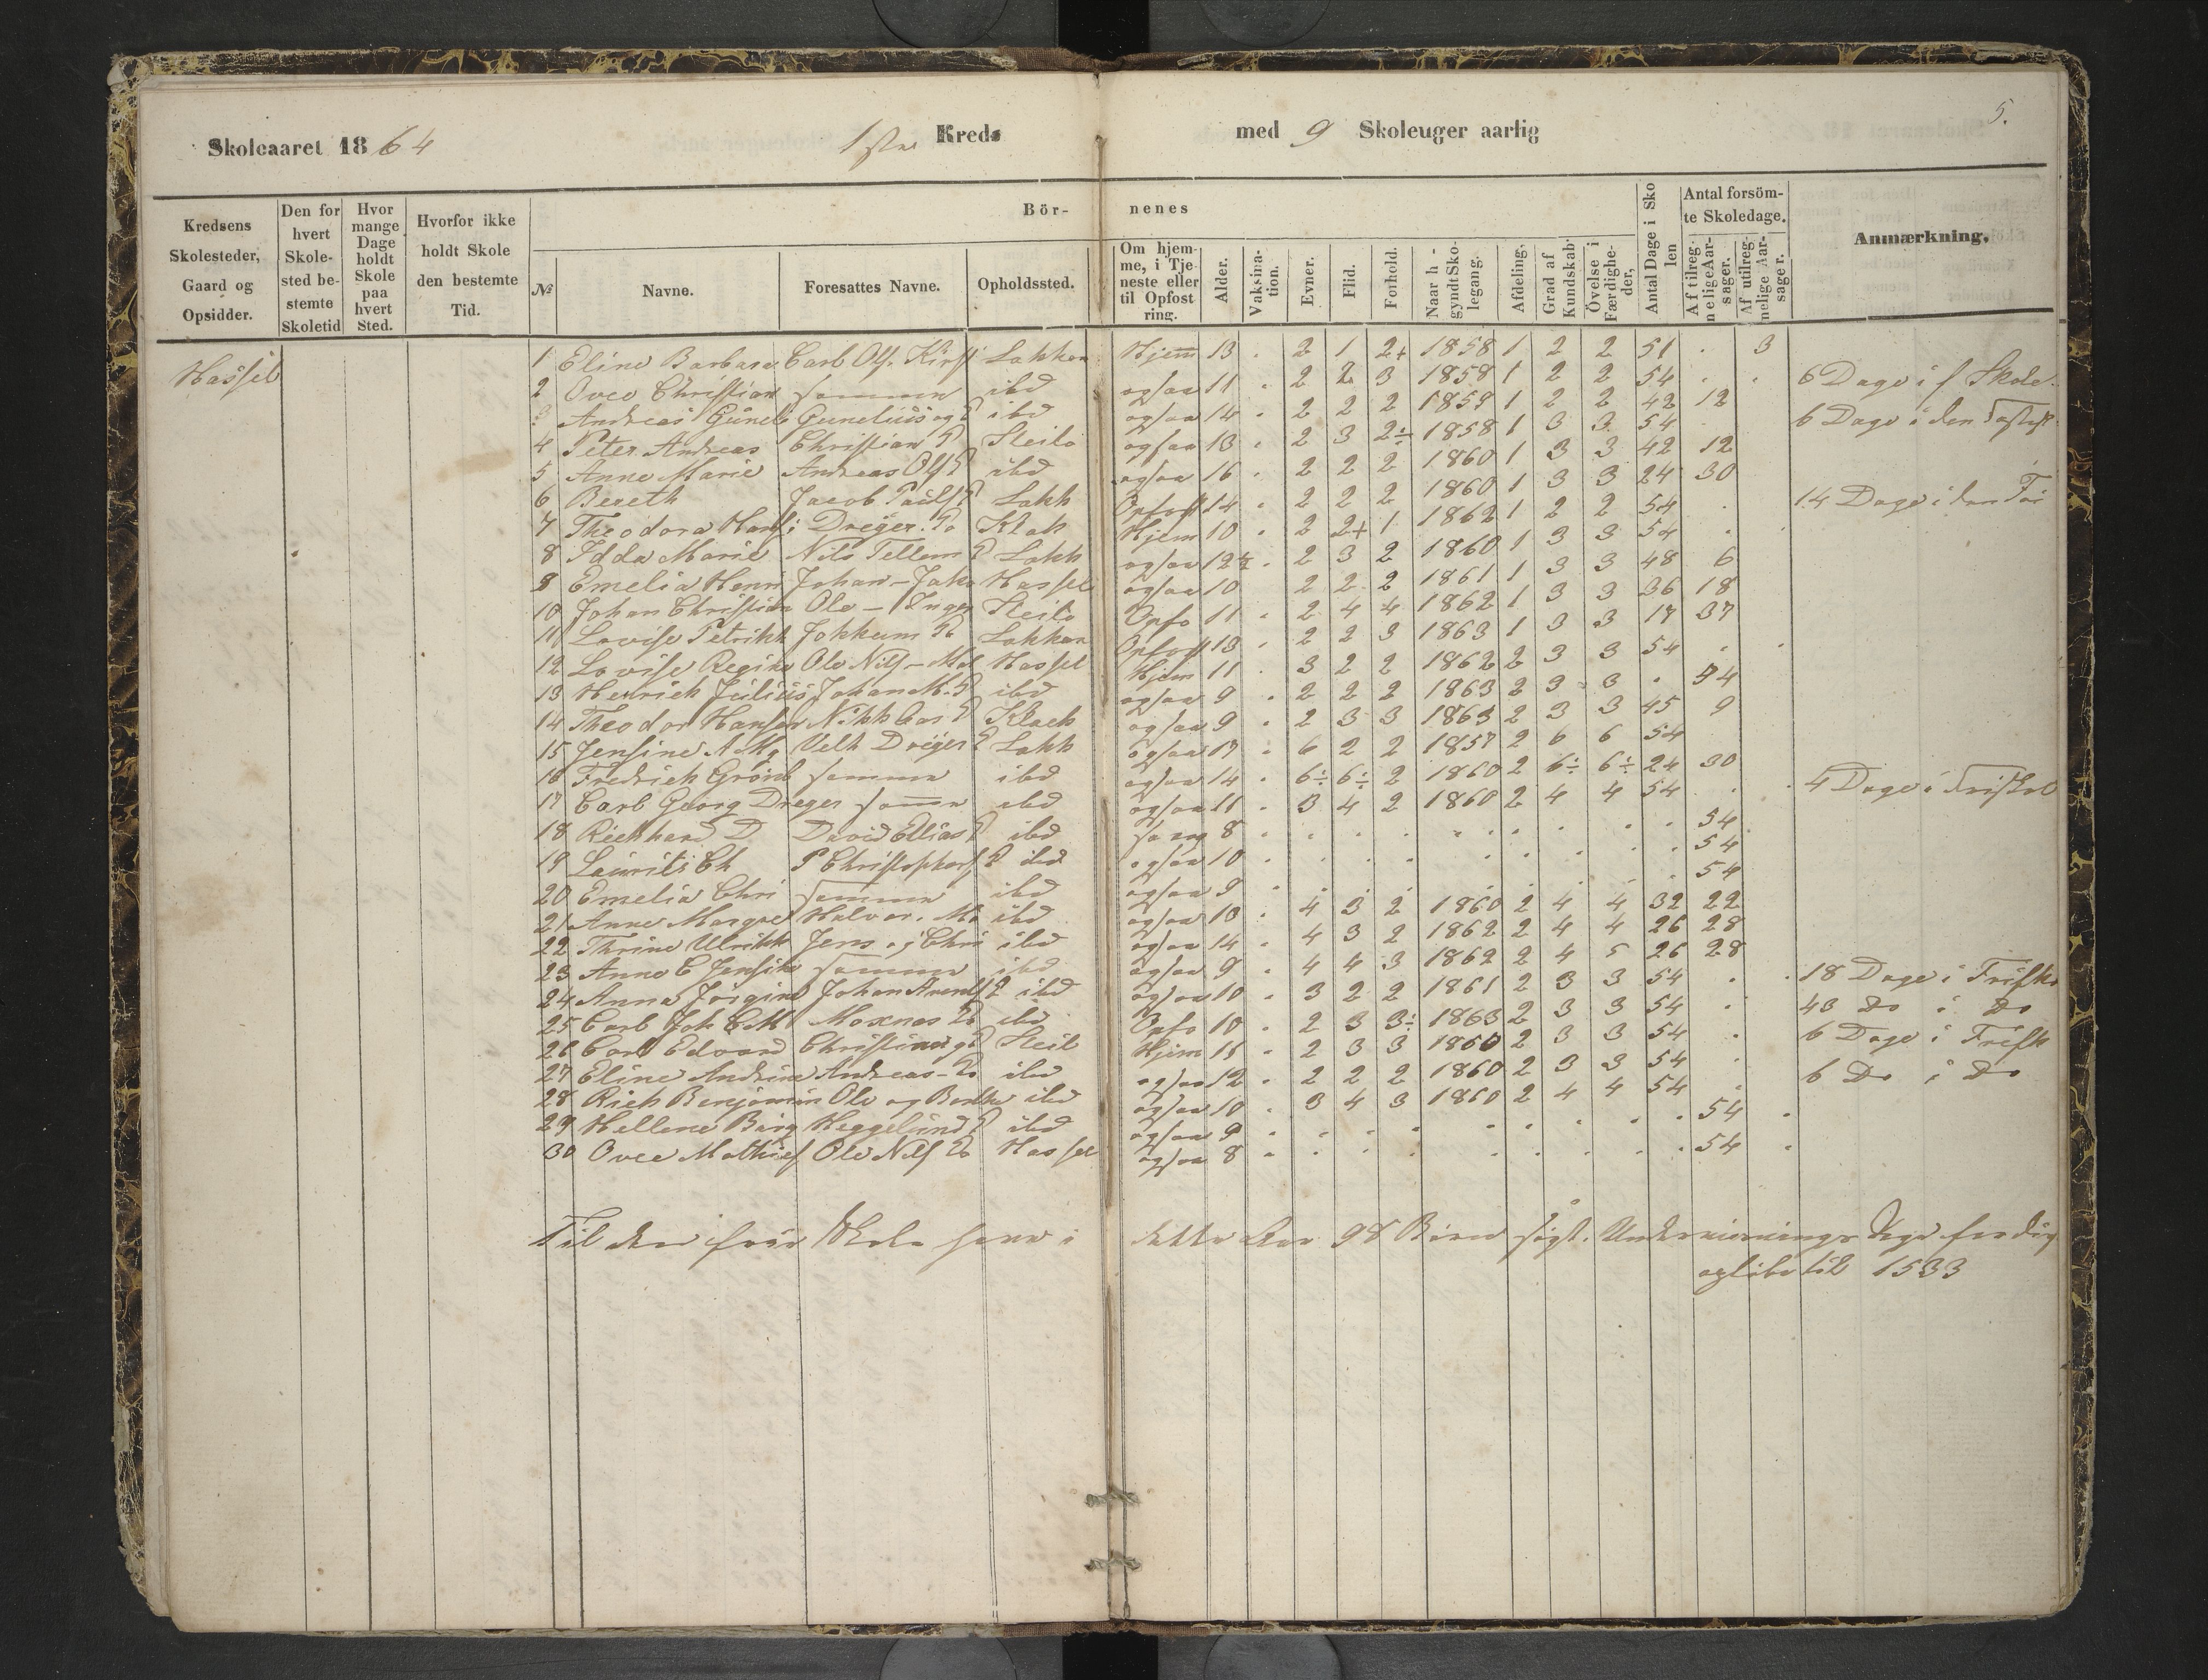 5.
Skoleaaret 1864 1ste Kreds med 9 Skoleuger aarlig
Kredsens Skolesteder, Gaard og Opsidder.
Den for hvert Skolested bestemte Skoletid
Hvor mange Dage holdt Skole paa hvert Sted.
Hvorfor ikke holdt Skole den bestemte Tid.
Börnenes
№
Navne.
Foresattes Navne.
Opholdssted.
Om hjemme, i Tjeneste eller til Opfostring.
Alder.
Vaksination.
Evner.
Flid.
Forhold.
Naar h - gyndt Skolegang.
Afdeling,
Grad af Kundskab.
Övelse i Færdigheder,
Antal Dage i Skolen
Antal forsömte Skoledage.
Af tilregnelige Aarsager.
Af utilregnelige Aarsager.
Anmærkning.
Hassel
1 Eline Barbara Carl Ols. Lakken Hjem 13 . 2 1 2+ 1858 1 2 2 51 . 3
2 Ovee Christian samme ibd ogsaa 11 . 2 2 3 1858 1 2 2 54 . . 6 Dage i f Skole.
3 Andreas ibd ogsaa 14 . 2 2 2 1859 1 2 2 42 12
4 Peter Andreas Christian Steilo ogsaa 13 . 2 3 2÷ 1858 1 3 3 54 . 6 Dage i den
5 Anne Marie Andreas Ols ibd ogsaa 16 . 2 2 2 1860 1 3 3 42 12
6 Bereth Jacob Pauls Lakk Opfost 14 . 2 2 2 1860 1 3 3 24 30
7 Theodora Hans Dreyer Klak Hjem 10 . 2 2+ 1 1862 1 2 2 54 . 14 Dage i den
8 Idda Marie Nils Tellem Lakk ogsaa 12½ . 2 3 2 1860 1 3 3 54 .
8 Emelia Henri Johan - Jako Hassel ogsaa 10 2 2 2 1861 1 3 3 48 6
10 Johan Christian Ole - Inger Steilo Opfo 11 . 2 4 4 1862 1 3 3 36 18
11 Lovise Petrikk Jokkum Lakken Opfost 13 . 2 2 3 1863 1 3 3 17 37
12 Lovise Regine Ole Nils - Hassel Hjem 11 . 3 2 2 1862 2 3 3 54 . .
13 Henrich Julius Johan M. ibd ogsaa 9 . 2 2 2 1863 2 3 3 . 54
14 Theodor Hansen Klack ogsaa 9 . 2 3 3 1863 2 3 3 45 9
15 Jensine Dreyer Lakk ogsaa 17 . 6 2 2 1857 2 6 6 54
16 Fredrich Grönb samme ibd ogsaa 14 . 6÷ 6÷ 2 1860 2 6÷ 6÷ 24 30
17 Carl Georg Dreyer samme ibd ogsaa 11 . 3 4 2 1860 2 4 4 54 . . 4 Dage i Friskol
18 Richhard D David Ellias ibd 8 . . . . . . . . . 54
19 Laurits Ch P Christophers ibd ogsaa 10 . . . . . . . . . 54
20 Emelia Chri samme ibd ogsaa 9 . . . . . . . . . 54
21 Anne Margret Halvor. ibd ogsaa 10 . 4 3 2 1860 2 4 4 32 22
22 Thrine Ulrikk Jens og Chri ibd ogsaa 14 . 4 3 2 1862 2 4 4 26 28
23 Anne C Jensine samme ibd ogsaa 9 . 4 4 3 1862 2 4 5 26 28
24 Anna Jörgine Johan ibd ogsaa 10 . 3 2 2 1861 2 3 3 54 . . 18 Dage i Frisk
25 Carl Joh Moxnes ibd Opfo 10 . 2 3 3÷ 1863 2 3 3 54 . 43 Do i Do
26 Carl Edvard Steil Hjem 11 . 2 3 3 1860 2 3 3 54 . 6 Dage i Frisk
27 Eline Andrine Andreas ibd ogsaa 12 . 2 2 2 1860 2 3 3 54 . 6 Do i Do
28 Rich Benjamin Ole og ibd ogsaa 10 . 3 4 3 1860 2 4 4 54 .
29 Hellene Heggelund ibd ogsaa 9 . . . . . . . . . 54 .
30 Ovee Mathias Ole Nils Hassel ogsaa 8 . . . . . . . . . 54 .
Til den frie Skole have i dette Aar 98 Börn sögt. Undervisnings Dage
1533